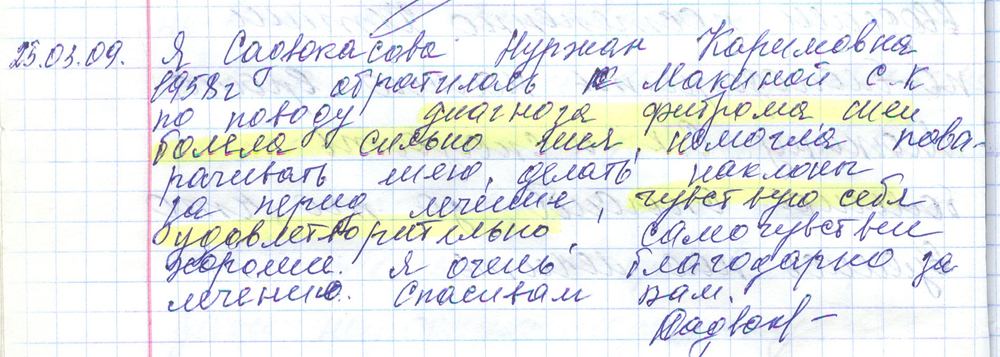 25.03.09. Я Садюкасова Нуржан Каримовна
1958г обратилась к Макиной С.К
по поводу диагноза фиброма шеи
болела сильно шея, не могла пова-
рачивать шею, делать наклоны
за период лечение, чувствую себя
удовлетворительно, самочувствии
хороши. Я очень благодарно за
лечению. Спасивам вам.